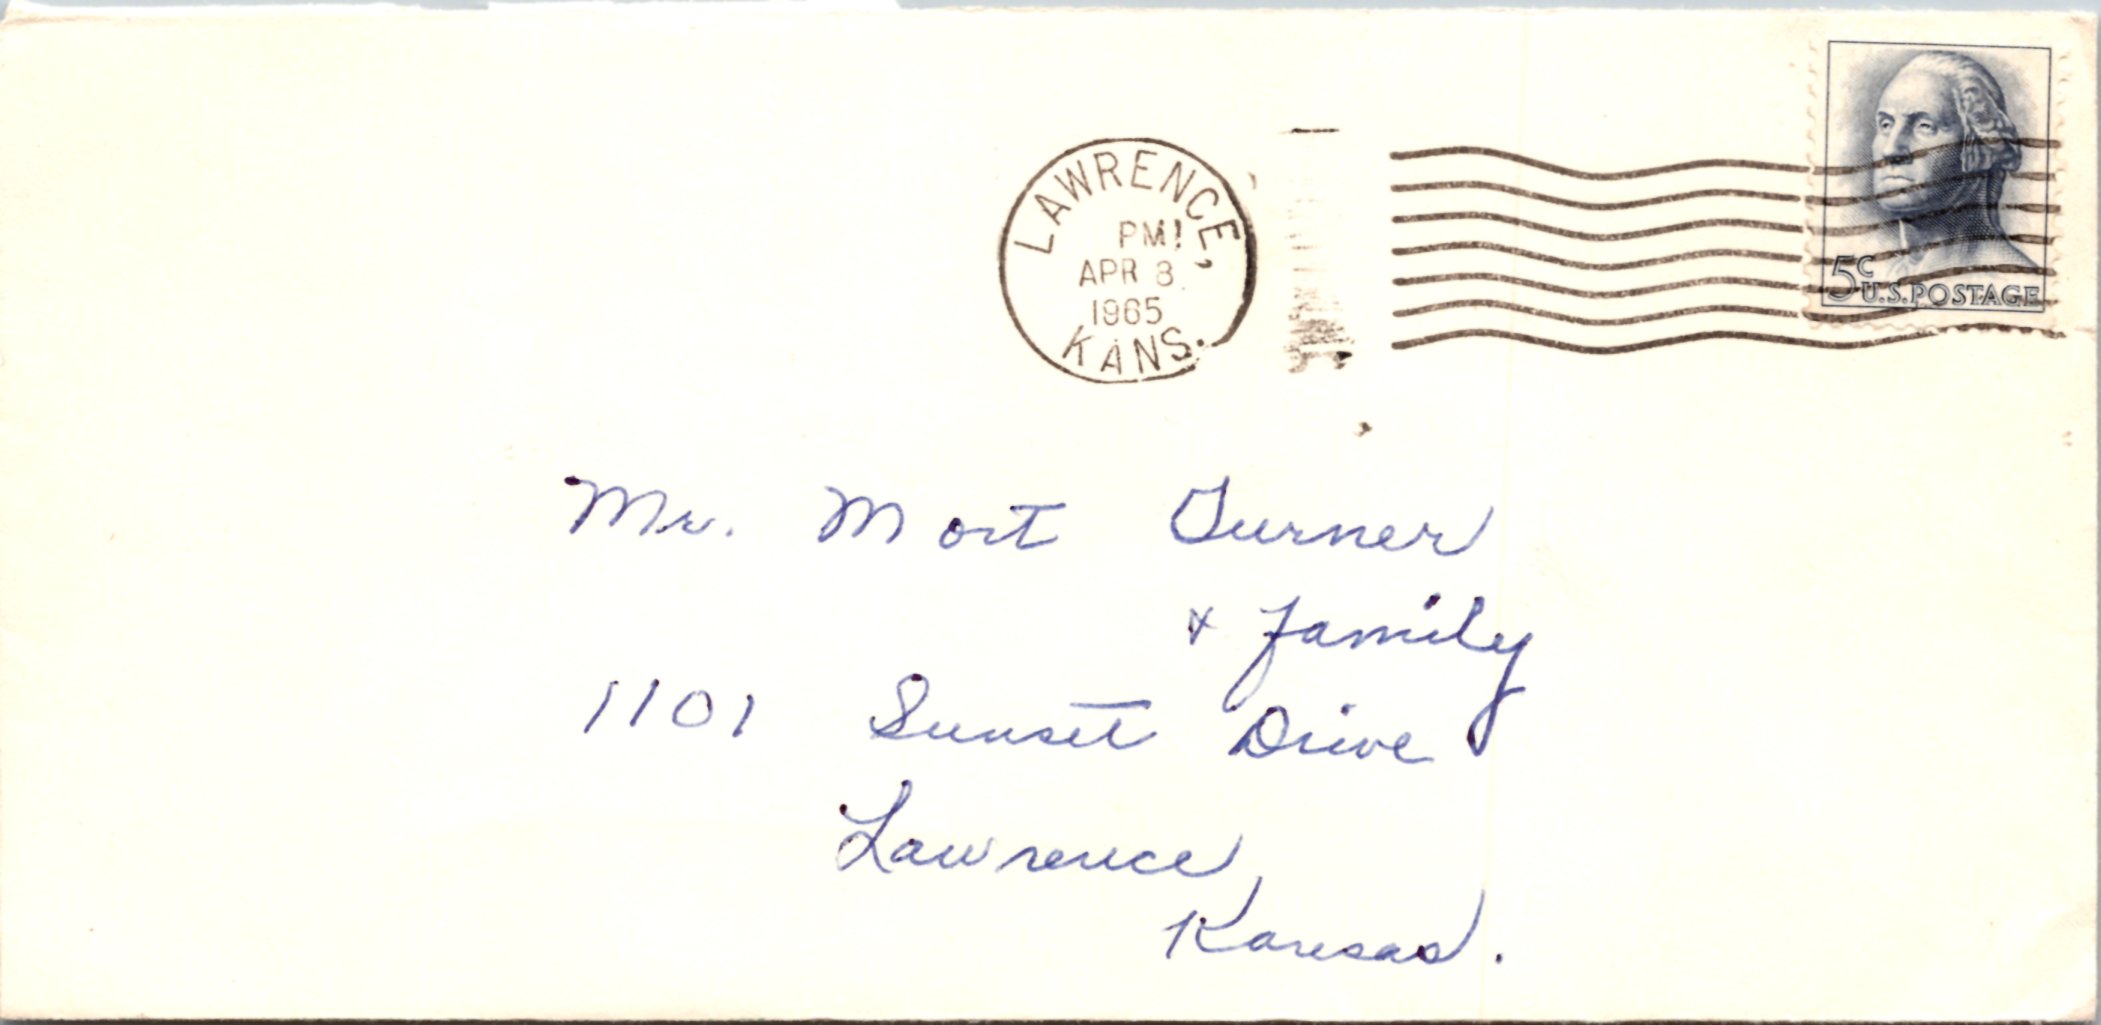 LAWRENCE,
PM
APR 8
1965
KANS.
5c
U.S. POSTAGE
Mr. Mort Turner
& family
1101 Sunset Drive
Lawrence,
Kansas.